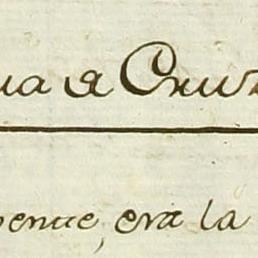 ua a Cruz
pente, era la